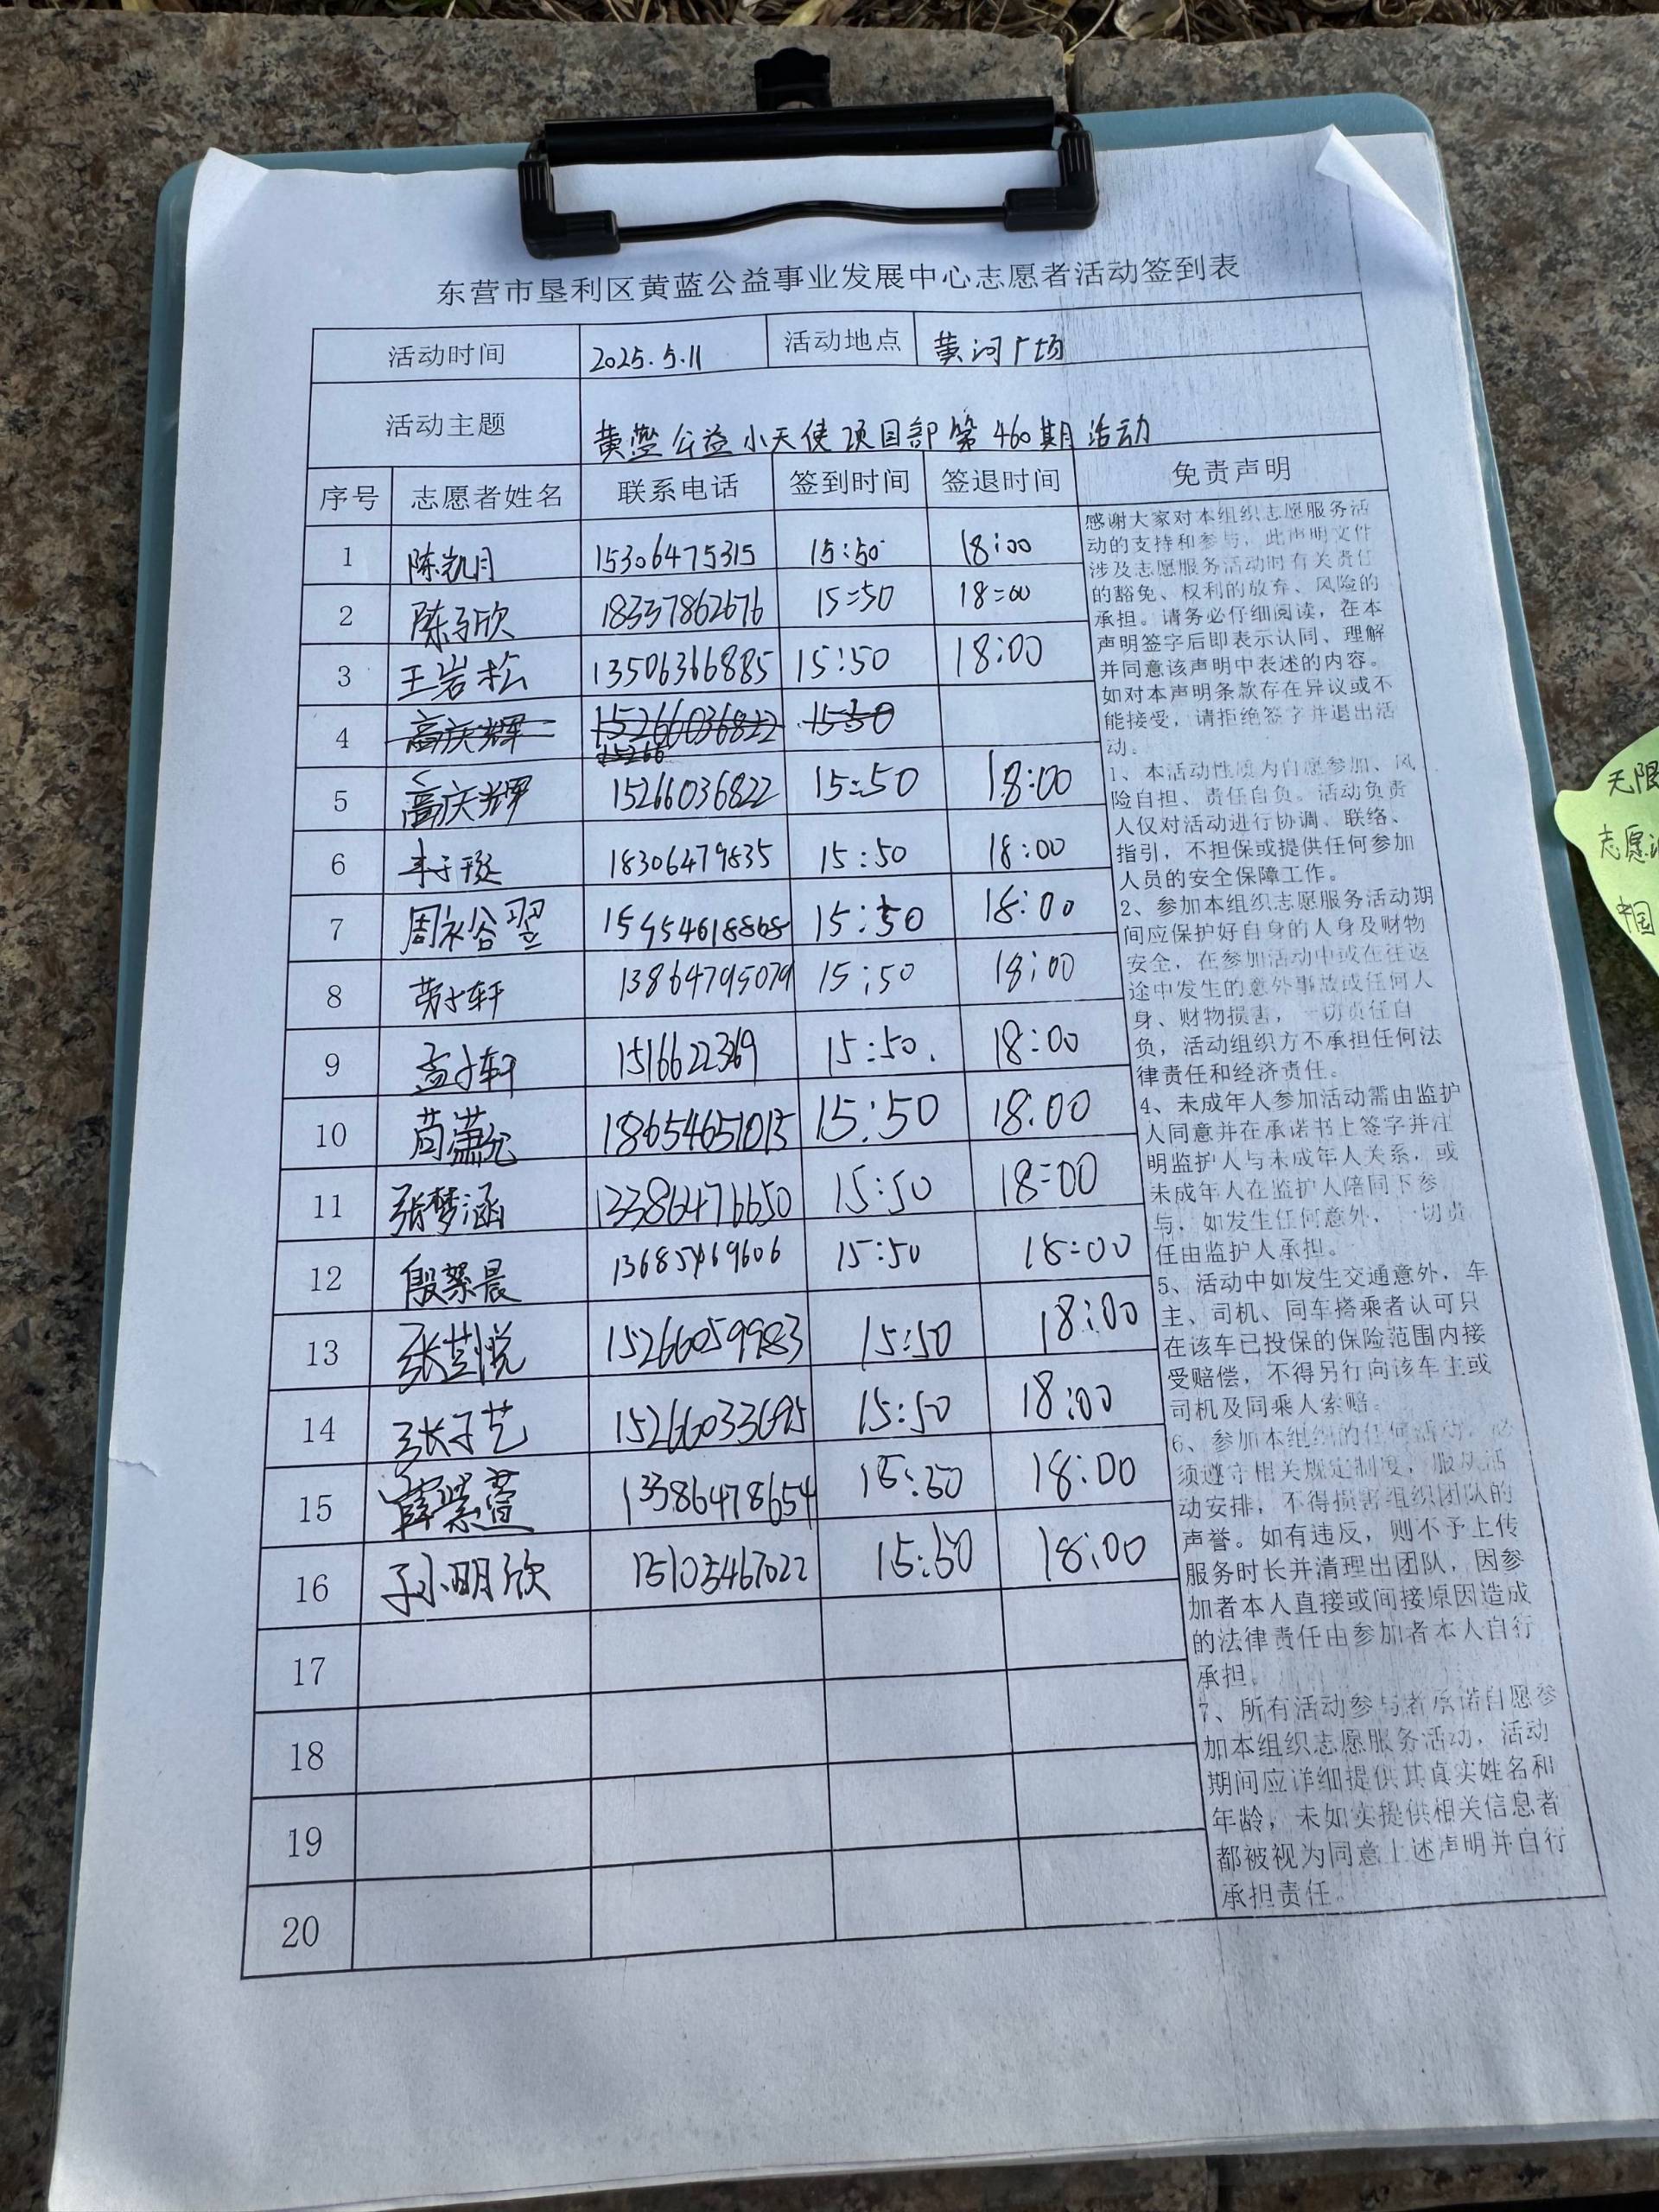 东营市垦利区黄蓝公益事业发展中心志愿者活动签到表
活动时间 2025.5.11 活动地点 黄河广场
活动主题 黄蓝公益小天使项目部第460期活动
序号 志愿者姓名 联系电话 签到时间 签退时间 免责声明
1 陈凯月 15306475315 15:50 18:00
2 陈子欣 18337862676 15:50 18:00
3 王岩松 13506366885 15:50 18:00
4 高庆辉 15266036822 1550
15266
5 高庆辉 15266036822 15:50 18:00
6 18306479835 15:50 18:00
7 周裕翌 15954618868 15:50 18:00
8 轩 13864795079 15:50 18:00
9 孟子轩 1516622369 15:50. 18:00
10 18654651015 15:50 18:00
11 张梦涵 13386476650 15:50 18:00
12 殷 晨 13685469606 15:50 18:00
13 张 悦 15266059983 15:50 18:00
14 张子艺 15266033695 15:50 18:00
15 薛紫萱 13386478654 15:50 18:00
16 孙明欣 15105467022 15:50 18:00
17
18
19
20
感谢大家对本组织志愿服务活
动的支持和参与，此声明文件
涉及志愿服务活动时有关责任
的豁免、权利的放弃、风险的
承担。请务必仔细阅读，在本
声明签字后即表示认同、理解
并同意该声明中表述的内容。
如对本声明条款存在异议或不
能接受，请拒绝签字并退出活
动。
1、本活动性质为自愿参加、风
险自担、责任自负。活动负责
人仅对活动进行协调、联络、
指引，不担保或提供任何参加
人员的安全保障工作。
2、参加本组织志愿服务活动期
间应保护好自身的人身及财物
安全，在参加活动中或在往返
途中发生的意外事故或任何人
身、财物损害，一切责任自
负，活动组织方不承担任何法
律责任和经济责任。
4、未成年人参加活动需由监护
人同意并在承诺书上签字并注
明监护人与未成年人关系，或
未成年人在监护人陪同下参
与，如发生任何意外，一切责
任由监护人承担。
5、活动中如发生交通意外，车
主、司机、同车搭乘者认可只
在该车已投保的保险范围内接
受赔偿，不得另行向该车主或
司机及同乘人索赔。
6、参加本组织的任何活动，必
须遵守相关规定制度，服从活
动安排，不得损害组织团队的
声誉。如有违反，则不予上传
服务时长并清理出团队，因参
加者本人直接或间接原因造成
的法律责任由参加者本人自行
承担。
7、所有活动参与者承诺自愿参
加本组织志愿服务活动，活动
期间应详细提供其真实姓名和
年龄，未如实提供相关信息者
都被视为同意上述声明并自行
承担责任。
无限
志愿
中国